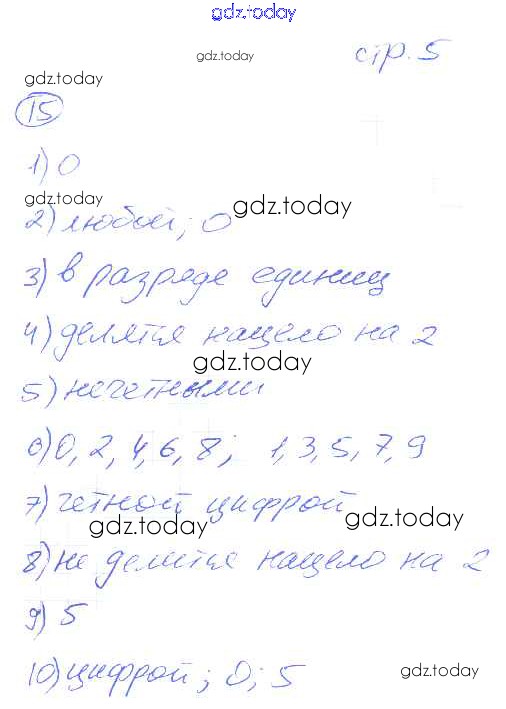 gdz.today
gdz.today стр. 5
gdz.today
15
1) 0
gdz.today
2) любой; 0 gdz.today
3) в разряде единиц
4) делятся нацело на 2
gdz.today
5) нечетными
6) 0, 2, 4, 6, 8; 1, 3, 5, 7, 9
7) четной цифрой
gdz.today gdz.today
8) не делится нацело на 2
9) 5
10) цифрой; 0; 5 gdz.today